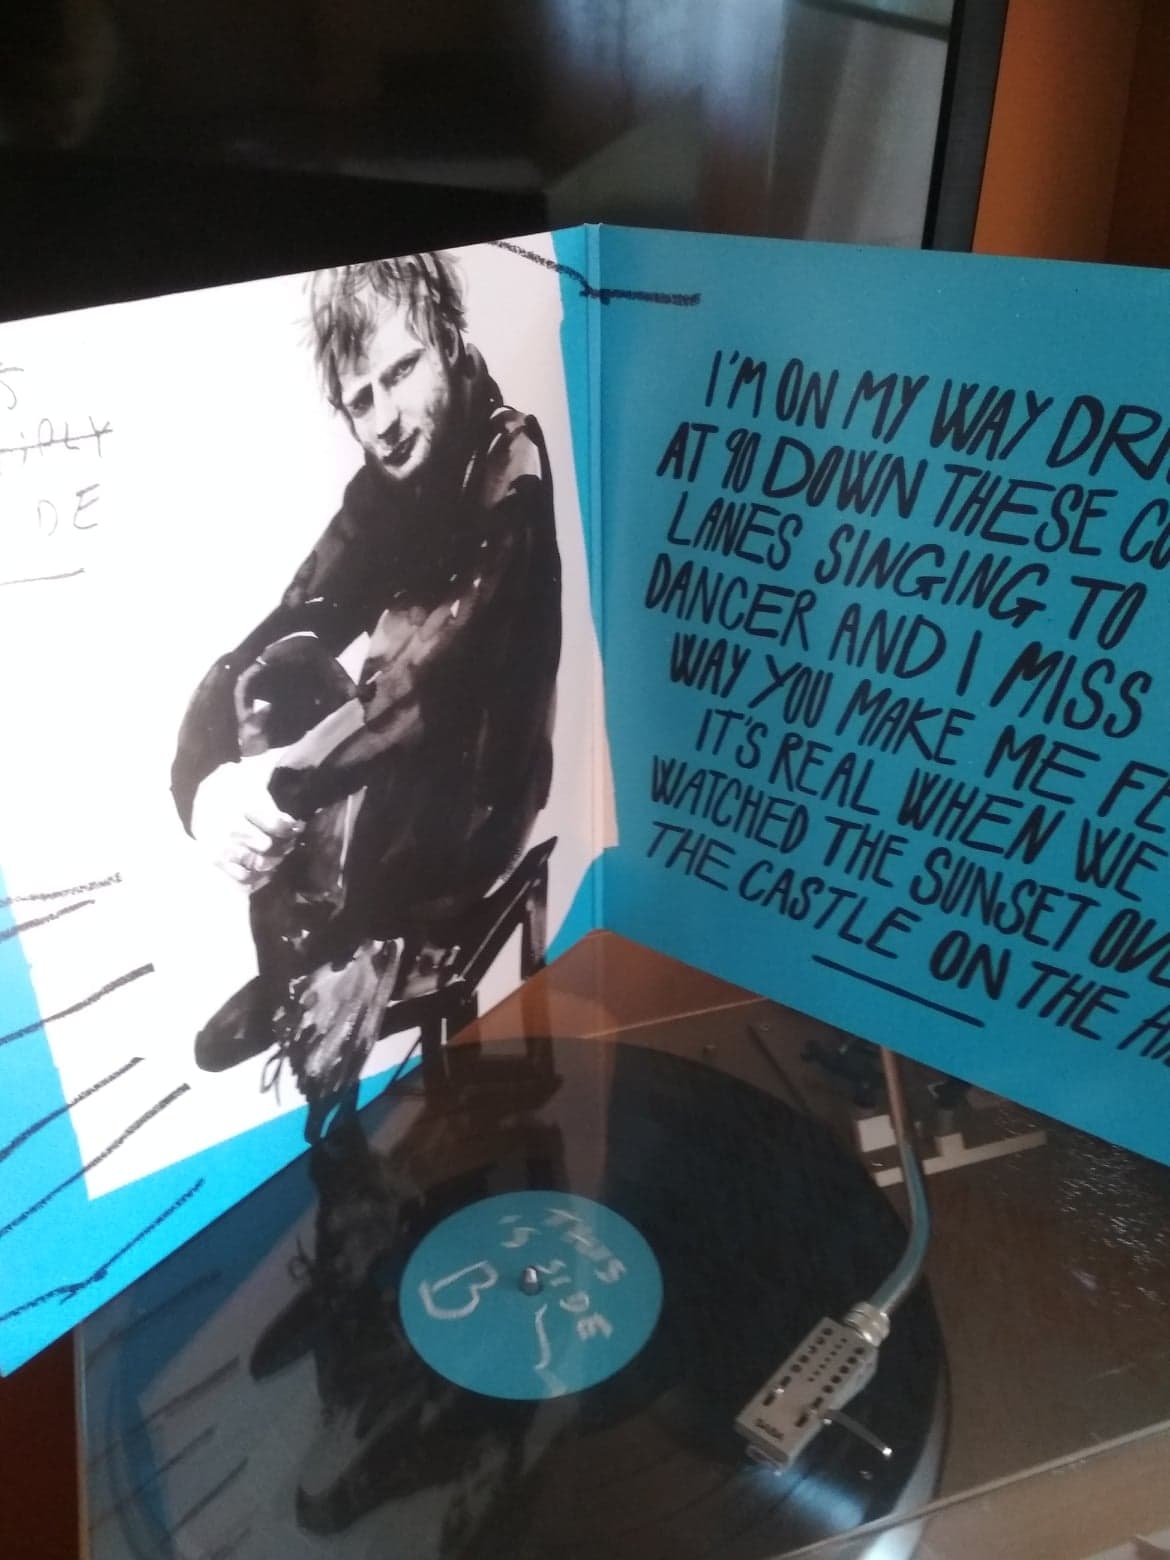 S
DE
I'M ON MY WAY DRI
AT 90 DOWN THESE CO
LANES SINGING TO
DANCER AND I MISS
WAY YOU MAKE ME FE
IT'S REAL WHEN WE
WATCHED THE SUNSET OVE
THE CASTLE ON THE
THIS
IS SIDE
B